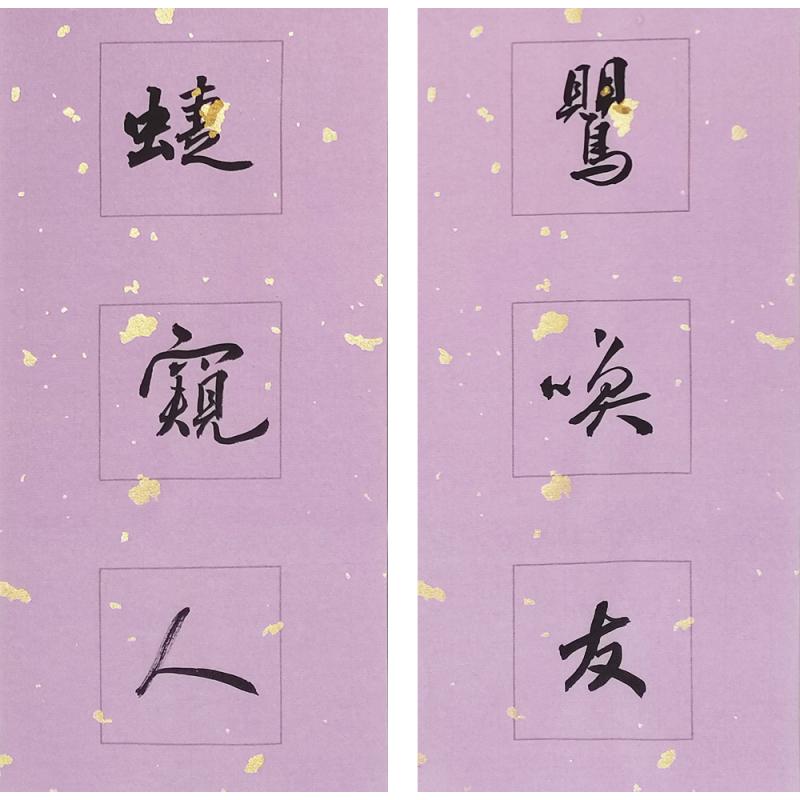 鸎喚友
蜨窺人